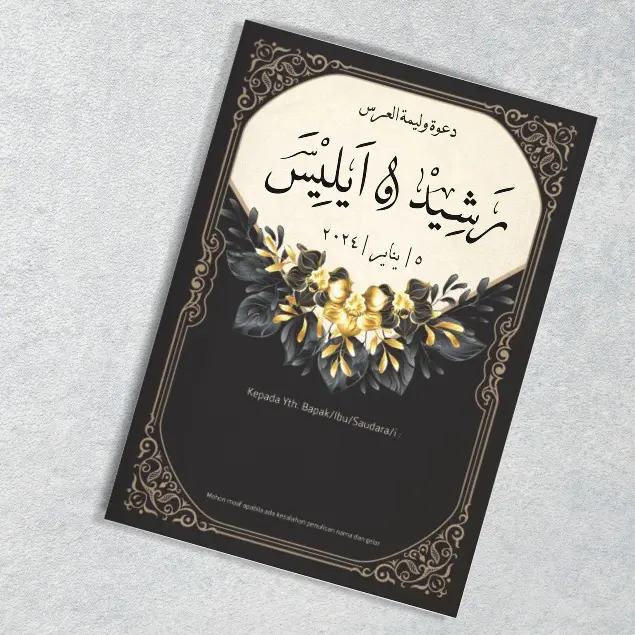 دعوة وليمة العرس
رَشِيْد و اَيلِيْسَ
٥ / يناير / ٢٠٢٤
Kepada Yth. Bapak/Ibu/Saudara/i :
Mohon maaf apabila ada kesalahan penulisan nama dan gelar